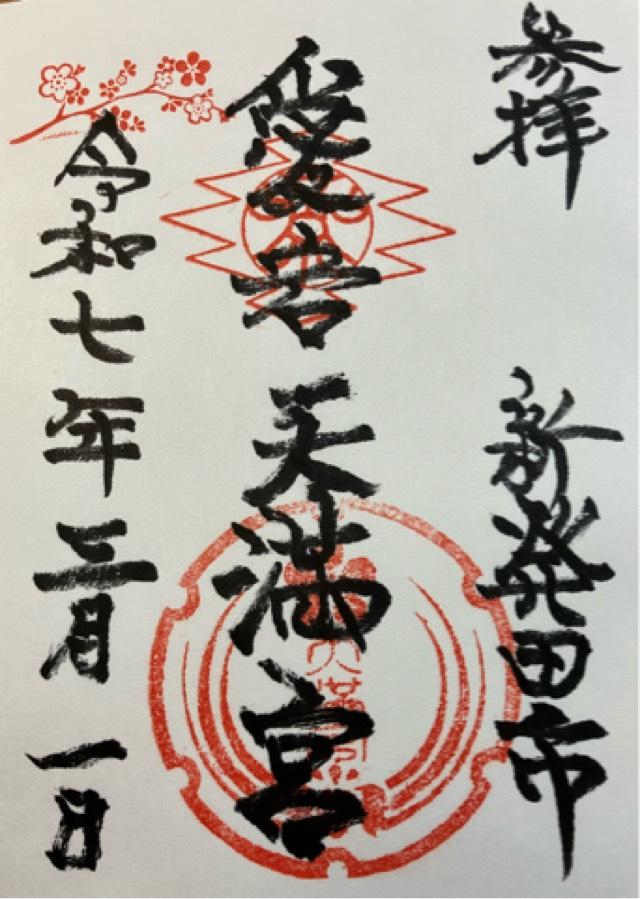 参拝 新発田市
愛宕天満宮
令和七年三月一日